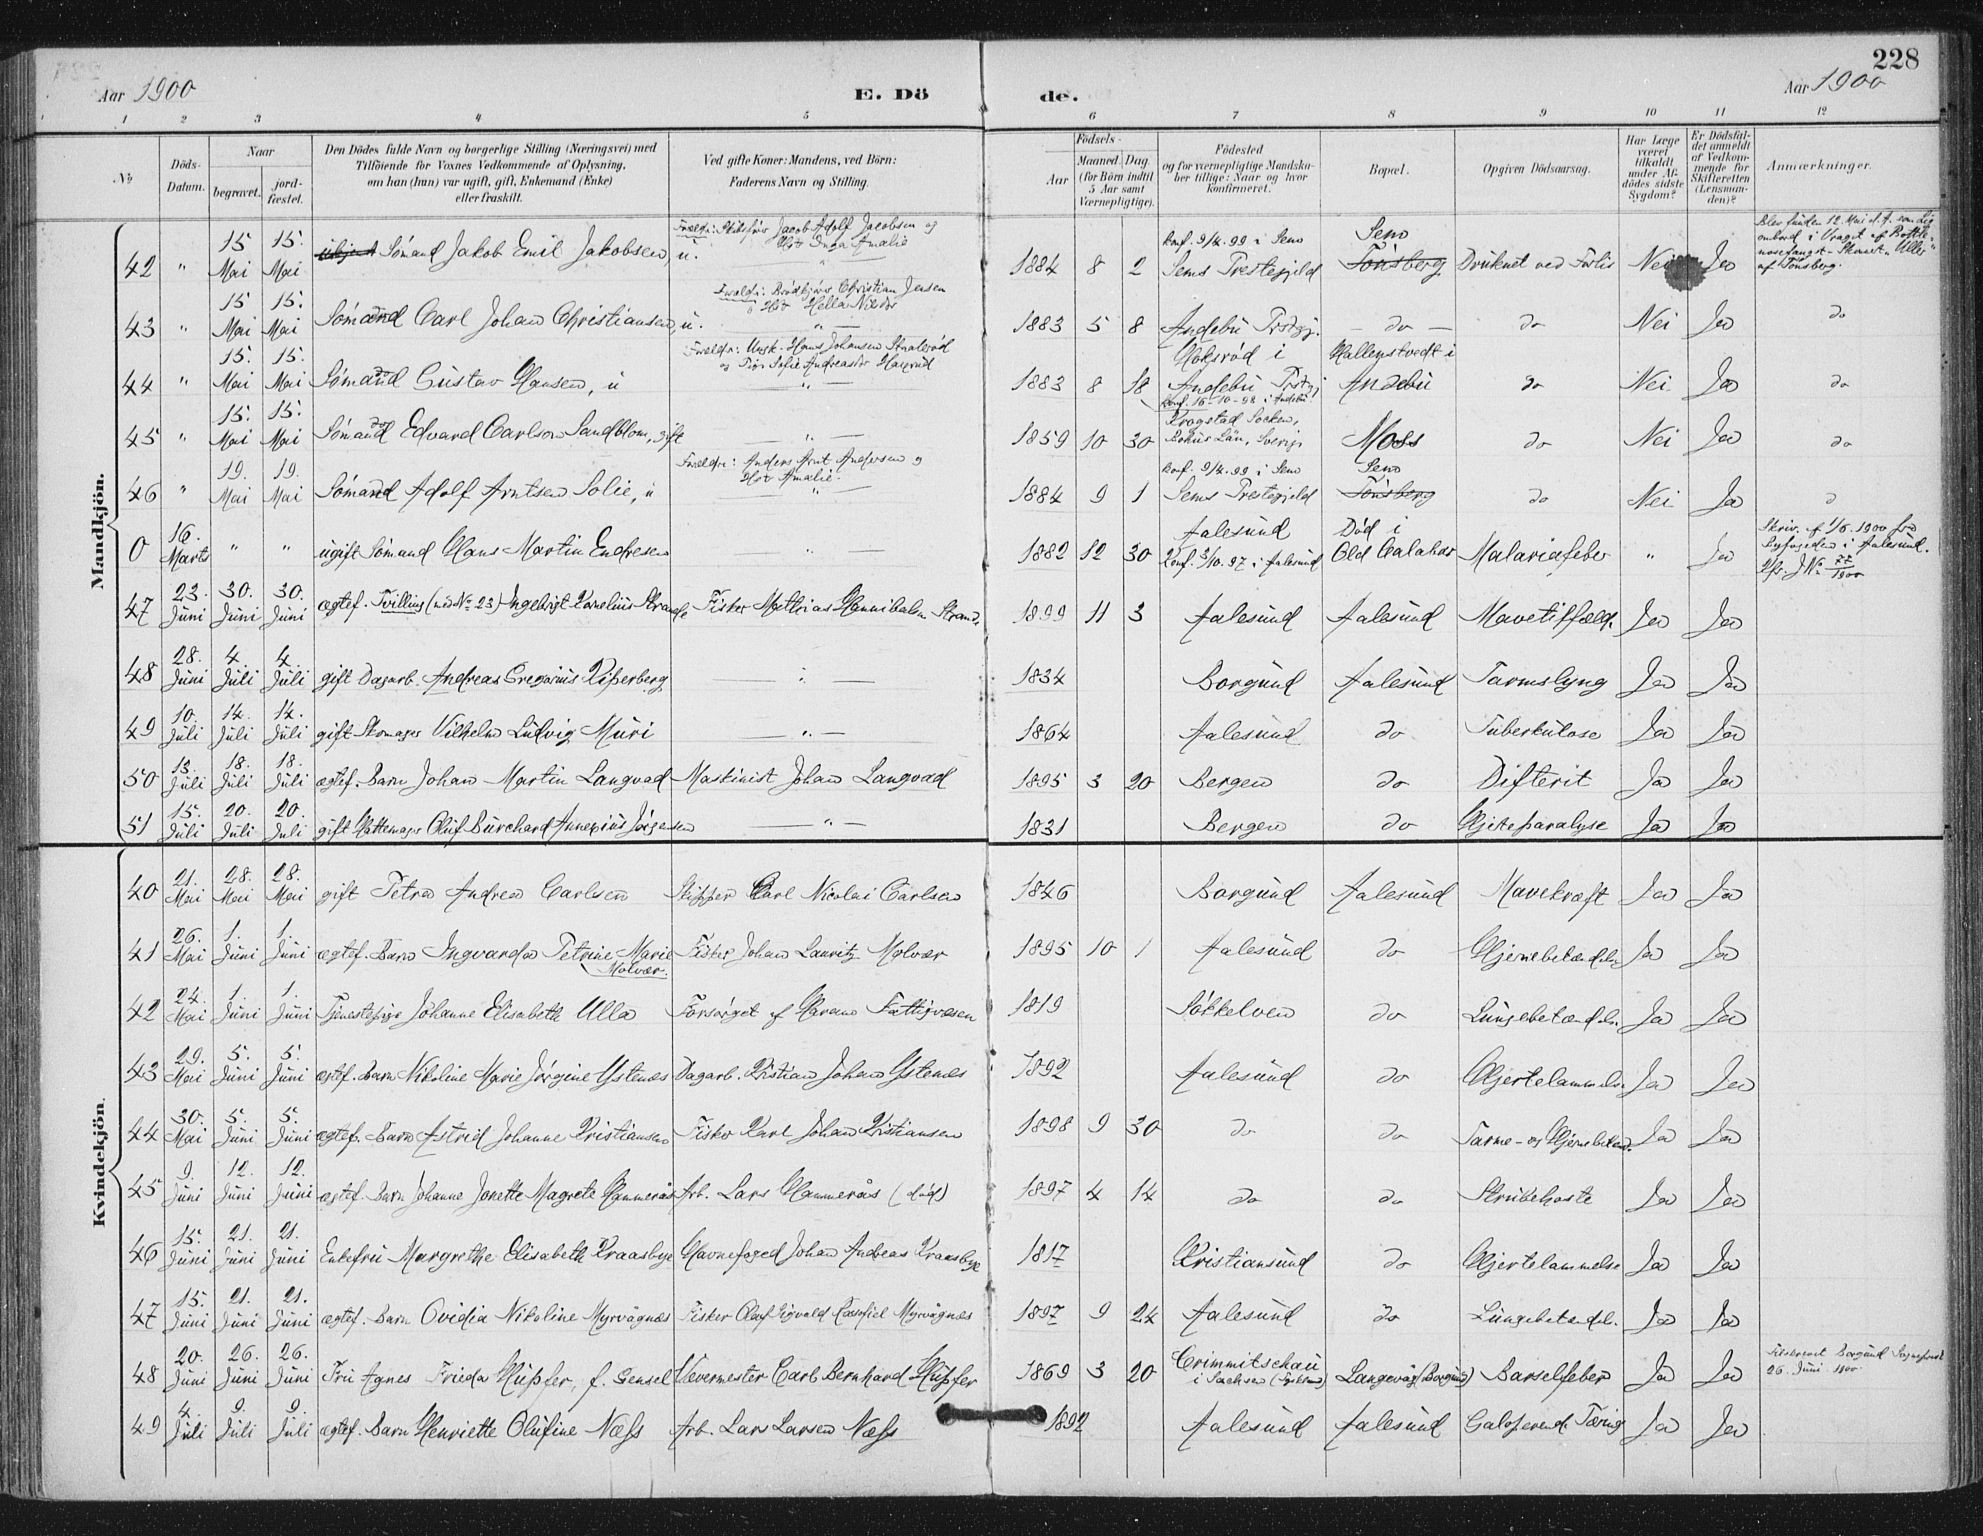 228
Aar 1900 E. Dö de. Aar 1900
1 2 3 4 5 6 7 8 9 10 11 12
No
Döds-Datum.
Naar
begravet.
jord-fæstet.
Den Dödes fulde Navn og borgerlige Stilling (Næringsvei) med
Tilföiende for Voxnes Vedkommende af Oplysning,
om han (hun) var ugift, gift, Enkemand (Enke)
eller fraskilt.
Ved gifte Koner: Mandens, ved Börn:
Faderens Navn og Stilling.
Födsels-
Aar
Maaned Dag
(for Börn indtil
5 Aar samt
Værnepligtige).
Födested
og for værnepligtige Mandska-
ber tillige: Naar og hvor
konfirmeret.
Bopæl.
Opgiven Dödsaarsag.
Har Læge
været
tilkaldt
under Af-
dödes sidste
Sygdom?
Er Dödsfal-
det anmeldt
af Vedkom-
mende for
Skifteretten
(Lensman-
den)?
Anmærkninger.
Mandkjön.
42 " 15 Mai 15. Mai Sömand Jakob Emil Jakobsen, u. Foreldr: Jacob Adolf Jacobsen og Inga Amalie 1884 8 2 konf. 9/4. 99 i Sem Sems Prestegjeld Sem Tönsberg Druknet ved Forlis Nei Ja Blev funden 12. Mai d. A. som Lig ombord i Vraget af Bottle-nosefangst-Skonnert "Uller" af Tönsberg.
43 " 15 Mai 15. Mai Sömand Carl Johan Christiansen, u. Foreldr: Christian Jensen 1883 5 8 Andebu Prstgj. — do — do Nei Ja do
44 " 15. Mai 15. Mai Sömand Gustav Hansen, u Foreldr: Ungk. Hans Johansen og Pige Sofie Andreasdr 1883 8 18 Andebu Prstgj konf. 16-10-98 i Andebu Hallenstvedt i Andebu do Nei Ja do
45 " 15. Mai 15. Mai Sömand Edvard Carlson Sandblom, gift — " — 1859 10 30 Krogstad Socken, Bohus Län, Sverige Moss do Nei Ja do
46 " 19. Mai 19. Mai Sömand Adolf Arntsen Solie, u Foreldr: Anders Arnt Andersen og Amalie 1884 9 1 konf. 9/4. 99 i Sem Sems Prestegjeld Sem Tönsberg do Nei Ja d
0 16. Marts " " ugift Sömand Hans Martin Endresen — " — 1882 12 30 Aalesund Konf. 3/10. 97 i Aalesund Död i Old Calabar Malariafeber " Ja Skriv. af 1/6. 1900 fra Byfogden i Aalesund. J No 77/1900
47 23. Juni 30. Juni 30. Juni ægtef. Tvilling (med No 23) Ingebrigt Kornelius Strande Fisker Mathias Hannibalm Strand. 1899 11 3 Aalesund Aalesund Mavetilfælde Ja Ja
48 28. Juni 4. Juli 4. Juli gift Dagarb. Andreas Gregorius Riperberg — " — 1834 Borgund Aalesund Tarmslyng Ja Ja
49 10. Juli 14. Juli 14. Juli gift Skomager Vilhelm Ludvig Muri — " — 1864 Aalesund do Tuberkulose Ja Ja
50 13. Juli 18. Juli 18. Juli ægtef. Barn Johan Martin Langvad Maskinist Johan Langvad 1895 3 20 Bergen do Difterit Ja Ja
51 15. Juli 20. Juli 20. Juli gift Hattemager Oluf Burchard Annexius Jörgensen — " — 1831 Bergen do Hjerteparalyse Ja Ja
Kvindekjön.
40 21. Mai 28. Mai 28. Mai gift Petra Andrea Carlsen Skipper Carl Nicolai Carlsen 1846 Borgund Aalesund Mavekræft Ja Ja
41 26. Mai 1. Juni 1. Juni ægtef. Barn Ingvarda Petrine Marie Molvær. Fisker Johan Lauritz Molvær 1895 10 1 Aalesund do Hjernebetændelse Ja Ja
42 24. Mai 1. Juni 1. Juni Tjenestepige Johanne Elisabeth Ulla Forsörget af Harams Fattigvæsen 1819 Sökkelven do Lungebetændelse Ja Ja
43 29. Mai 5. Juni 5. Juni ægtef. Barn Nikoline Marie Jörgine Ystenæs Dagarb. Kristian Johan Ystenæs 1892 Aalesund do Hjertelammelse Ja Ja
44 30. Mai 5. Juni 5. Juni ægtef. Barn Astrid Johanne Kristiansen Fisker Karl Johan Kristiansen 1898 9 30 do do Tarme- og Hjernebetænd. Ja Ja
45 9. Juni 12. Juni 12. Juni ægtef. Barn Johanne Jonette Magrete Hammerås Arb. Lars Hammerås (död) 1897 4 14 do do Strubehoste Ja Ja
46 15. Juni 21. Juni 21. Juni Enkefru Margrethe Elisabeth Kraasbye Havnefoged Johan Andreas Kraasbye 1817 Kristiansund do Hjertelammelse Ja Ja
47 15. Juni 21. Juni 21. Juni ægtef. Barn Ovidia Nikoline Myrvägnæs Fisker Oluf Sigvald Myrvägnæs 1897 9 24 Aalesund do Lungebetændelse. Ja Ja
48 20. Juni 26. Juni 26. Juni Fru Agnes Frieda Hüpfer, f. Gensel Vævermester Carl Bernhard Hüpfer 1869 3 20 Crimmitschau i Sachsen (Tyskland) Langevåg (Borgund) Barselfeber Ja Ja Borgund Sogneprest 26. Juni 1900
49 4. Juli 9. Juli 9. Juli ægtef. Barn Henriette Olufine Næss Arb. Lars Larsen Næss 1892 Aalesund Aalesund Galoperend Tæring Ja Ja